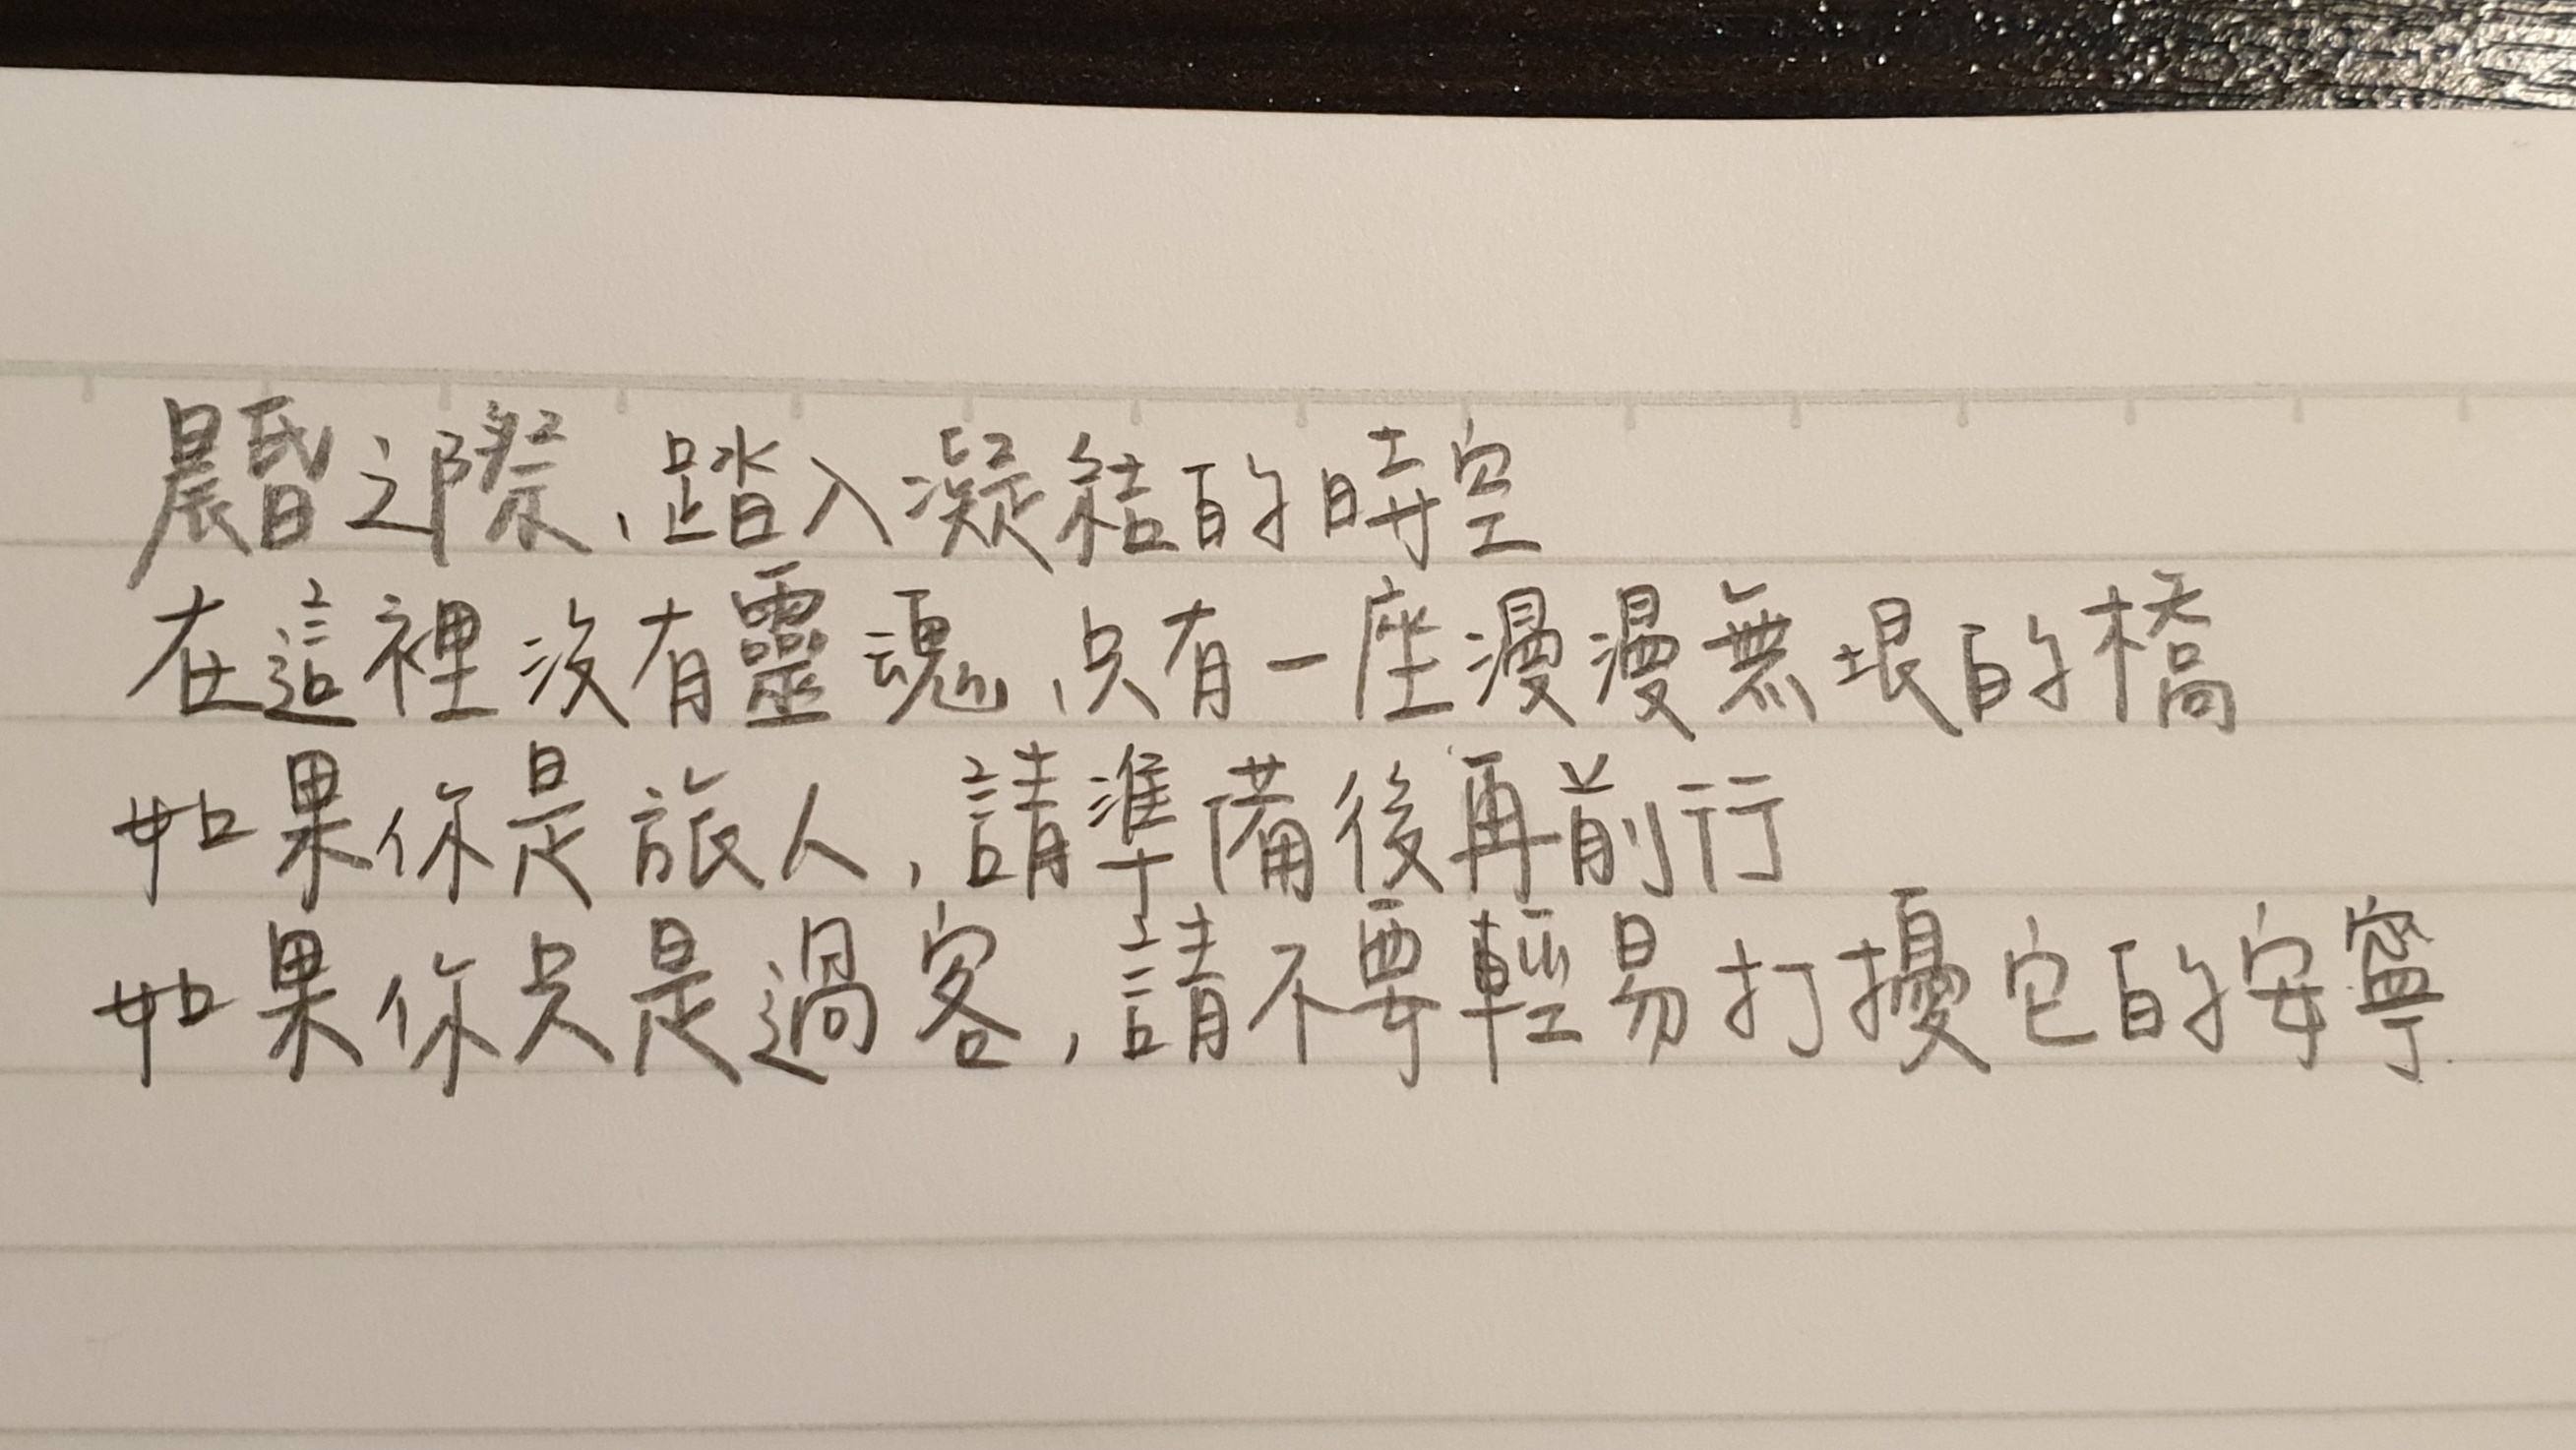 晨昏之際，踏入凝結的時空
在這裡沒有靈魂，只有一座漫漫無垠的橋
如果你是旅人，請準備後再前行
如果你只是過客，請不要輕易打擾它的安寧